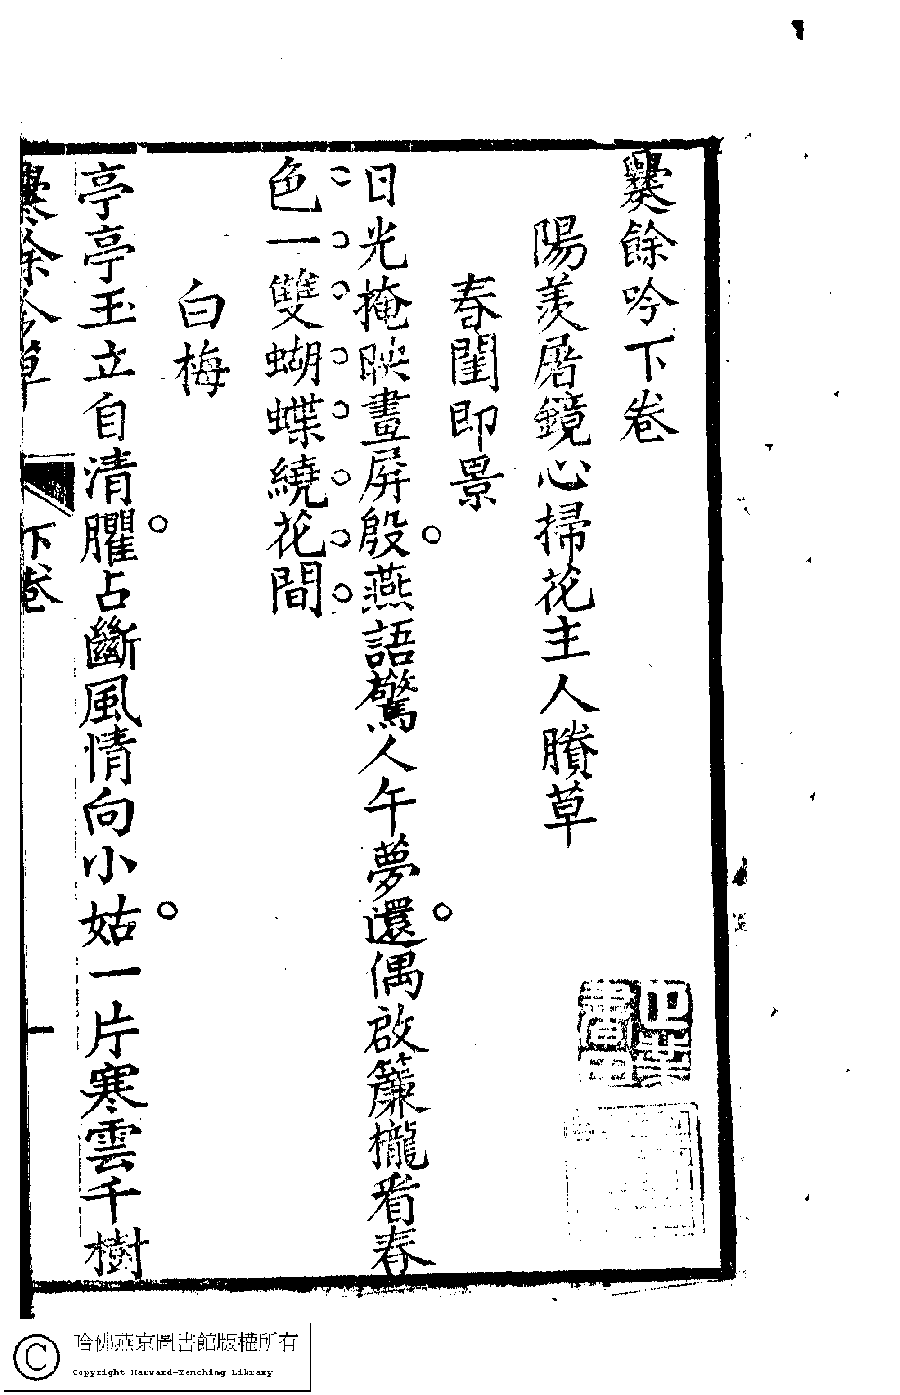 爨餘吟下卷
陽羨屠鏡心掃花主人賸草
春閨即景
日光掩映畫屏殷燕語驚人午夢還偶啟簾櫳看春
色一雙蝴蝶繞花間
白梅
亭亭玉立自清臞占斷風情向小姑一片寒雲千樹
爨餘吟草 下卷 一
哈佛燕京圖書館版權所有
Copyright Harvard-Yenching Library